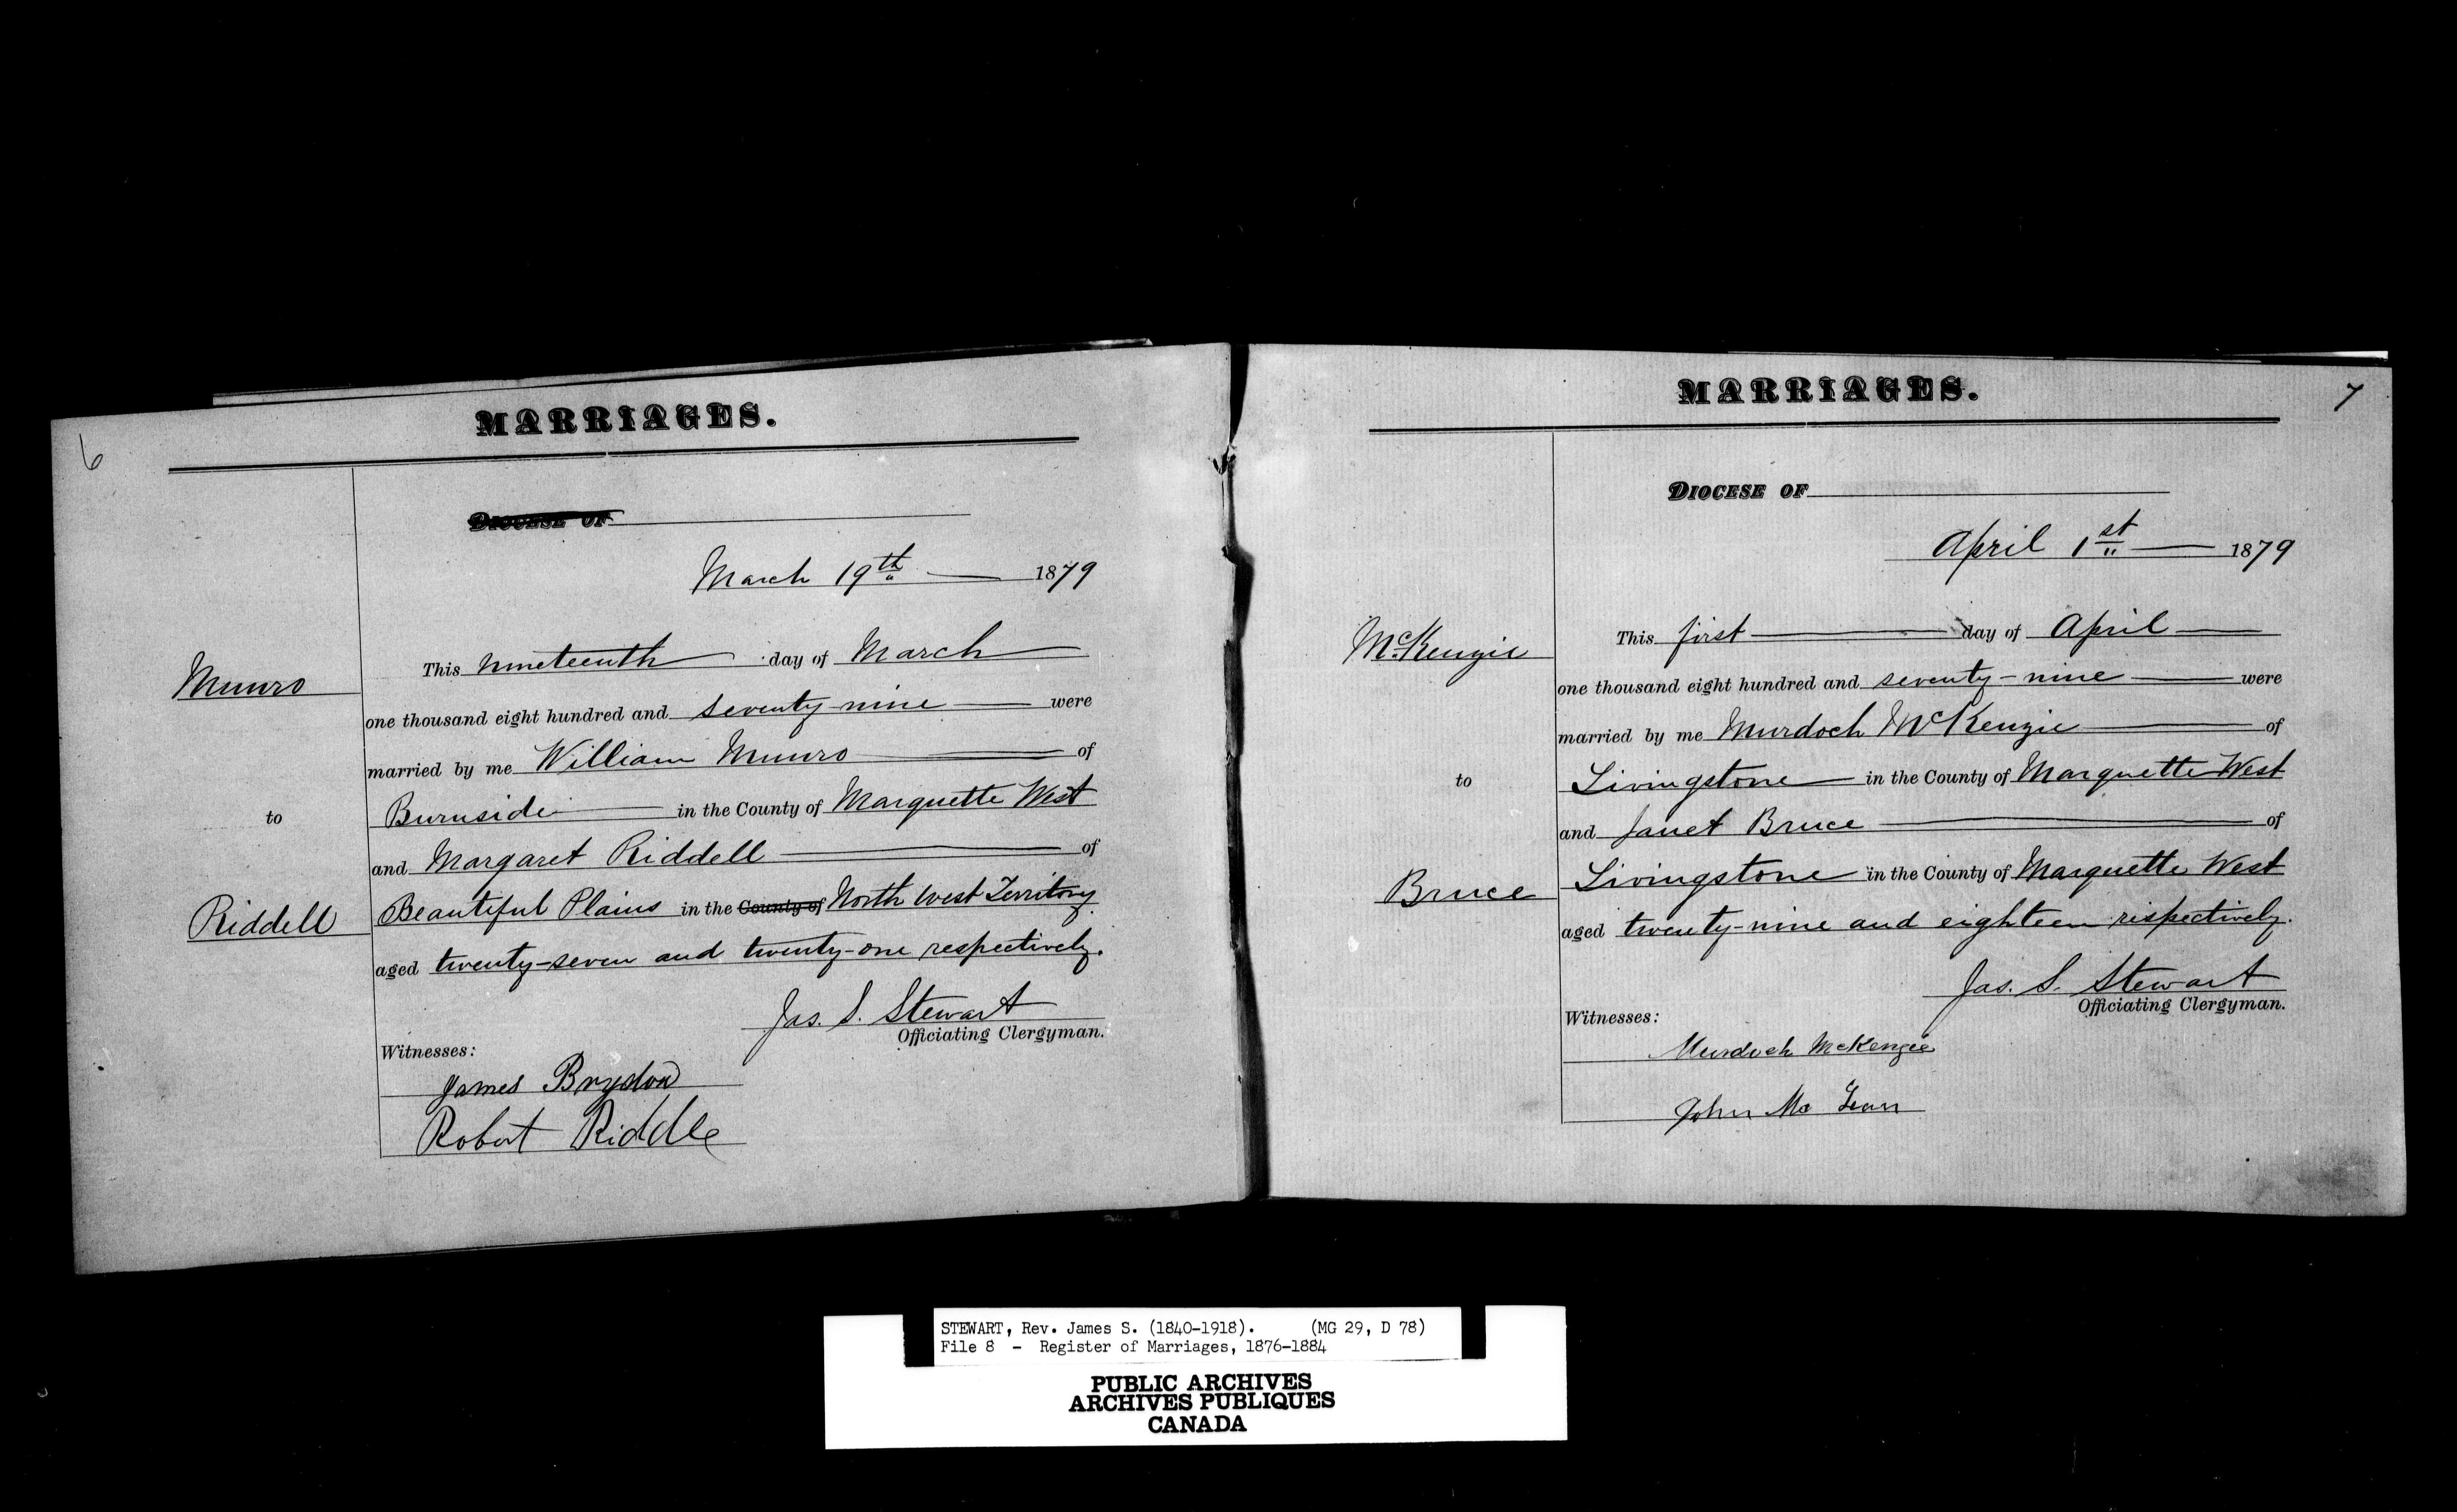 6
MARRIAGES.
DIOCESE OF
March 19th 1879
Munro
to
Riddell
This nineteenth day of March
one thousand eight hundred and seventy-nine were
married by me William Munro of
Burnside in the County of Marquette West
and Margaret Riddell of
Beautiful Plains in the County of North West Territory
aged twenty-seven and twenty-one respectively.
Jas. S. Stewart
Officiating Clergyman.
Witnesses:
James Brydon
Robert Riddle
7
MARRIAGES.
DIOCESE OF
April 1st 1879
McKenzie
to
Bruce
This first day of April
one thousand eight hundred and seventy-nine were
married by me Murdoch McKenzie of
Livingstone in the County of Marquette West
and Janet Bruce of
Livingstone in the County of Marquette West
aged twenty-nine and eighteen respectively.
Jas. S. Stewart
Officiating Clergyman.
Witnesses:
Murdoch McKenzie
John Mc Lean
STEWART, Rev. James S. (1840-1918). (MG 29, D 78)
File 8 - Register of Marriages, 1876-1884
PUBLIC ARCHIVES
ARCHIVES PUBLIQUES
CANADA